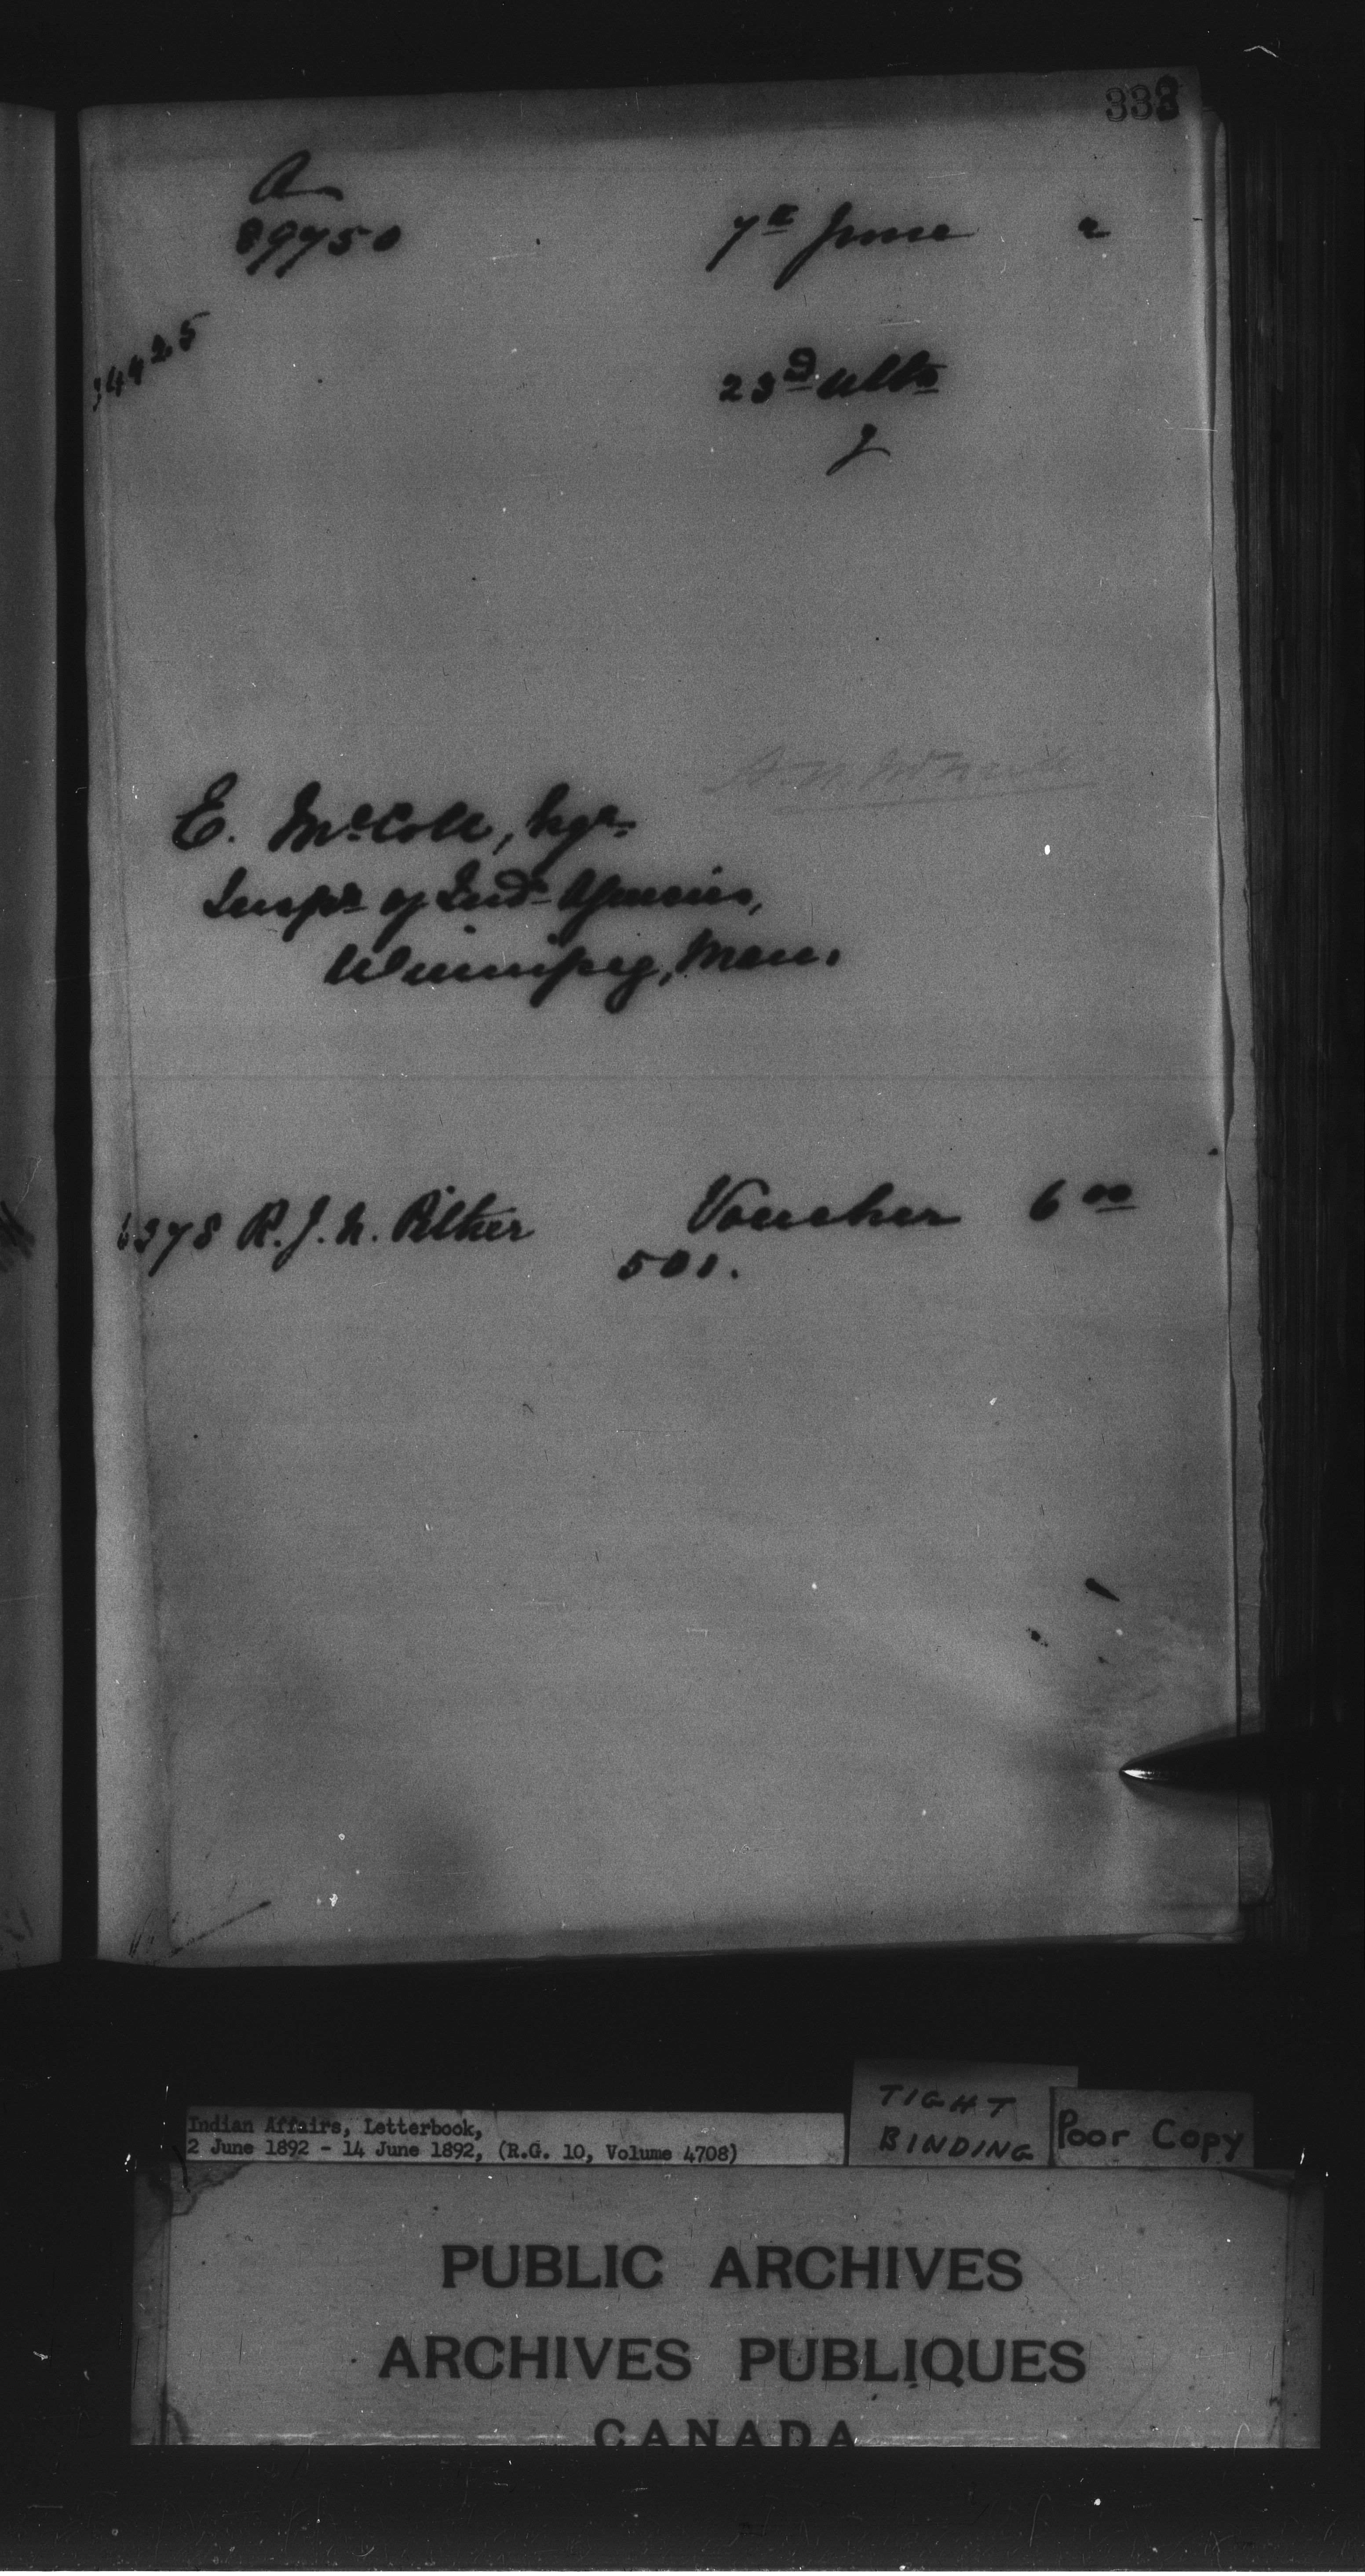 333
A
89750 7th June 2
34425
23rd ulto
J
E. McColl, Esqr.
Inspr. of Indn. Agencies,
Winnipeg, Man.
6378 R. J. N. Pither Voucher 6 00
501.
Indian Affairs, Letterbook,
2 June 1892 - 14 June 1892, (R.G. 10, Volume 4708)
TIGHT
BINDING
Poor Copy
PUBLIC ARCHIVES
ARCHIVES PUBLIQUES
CANADA